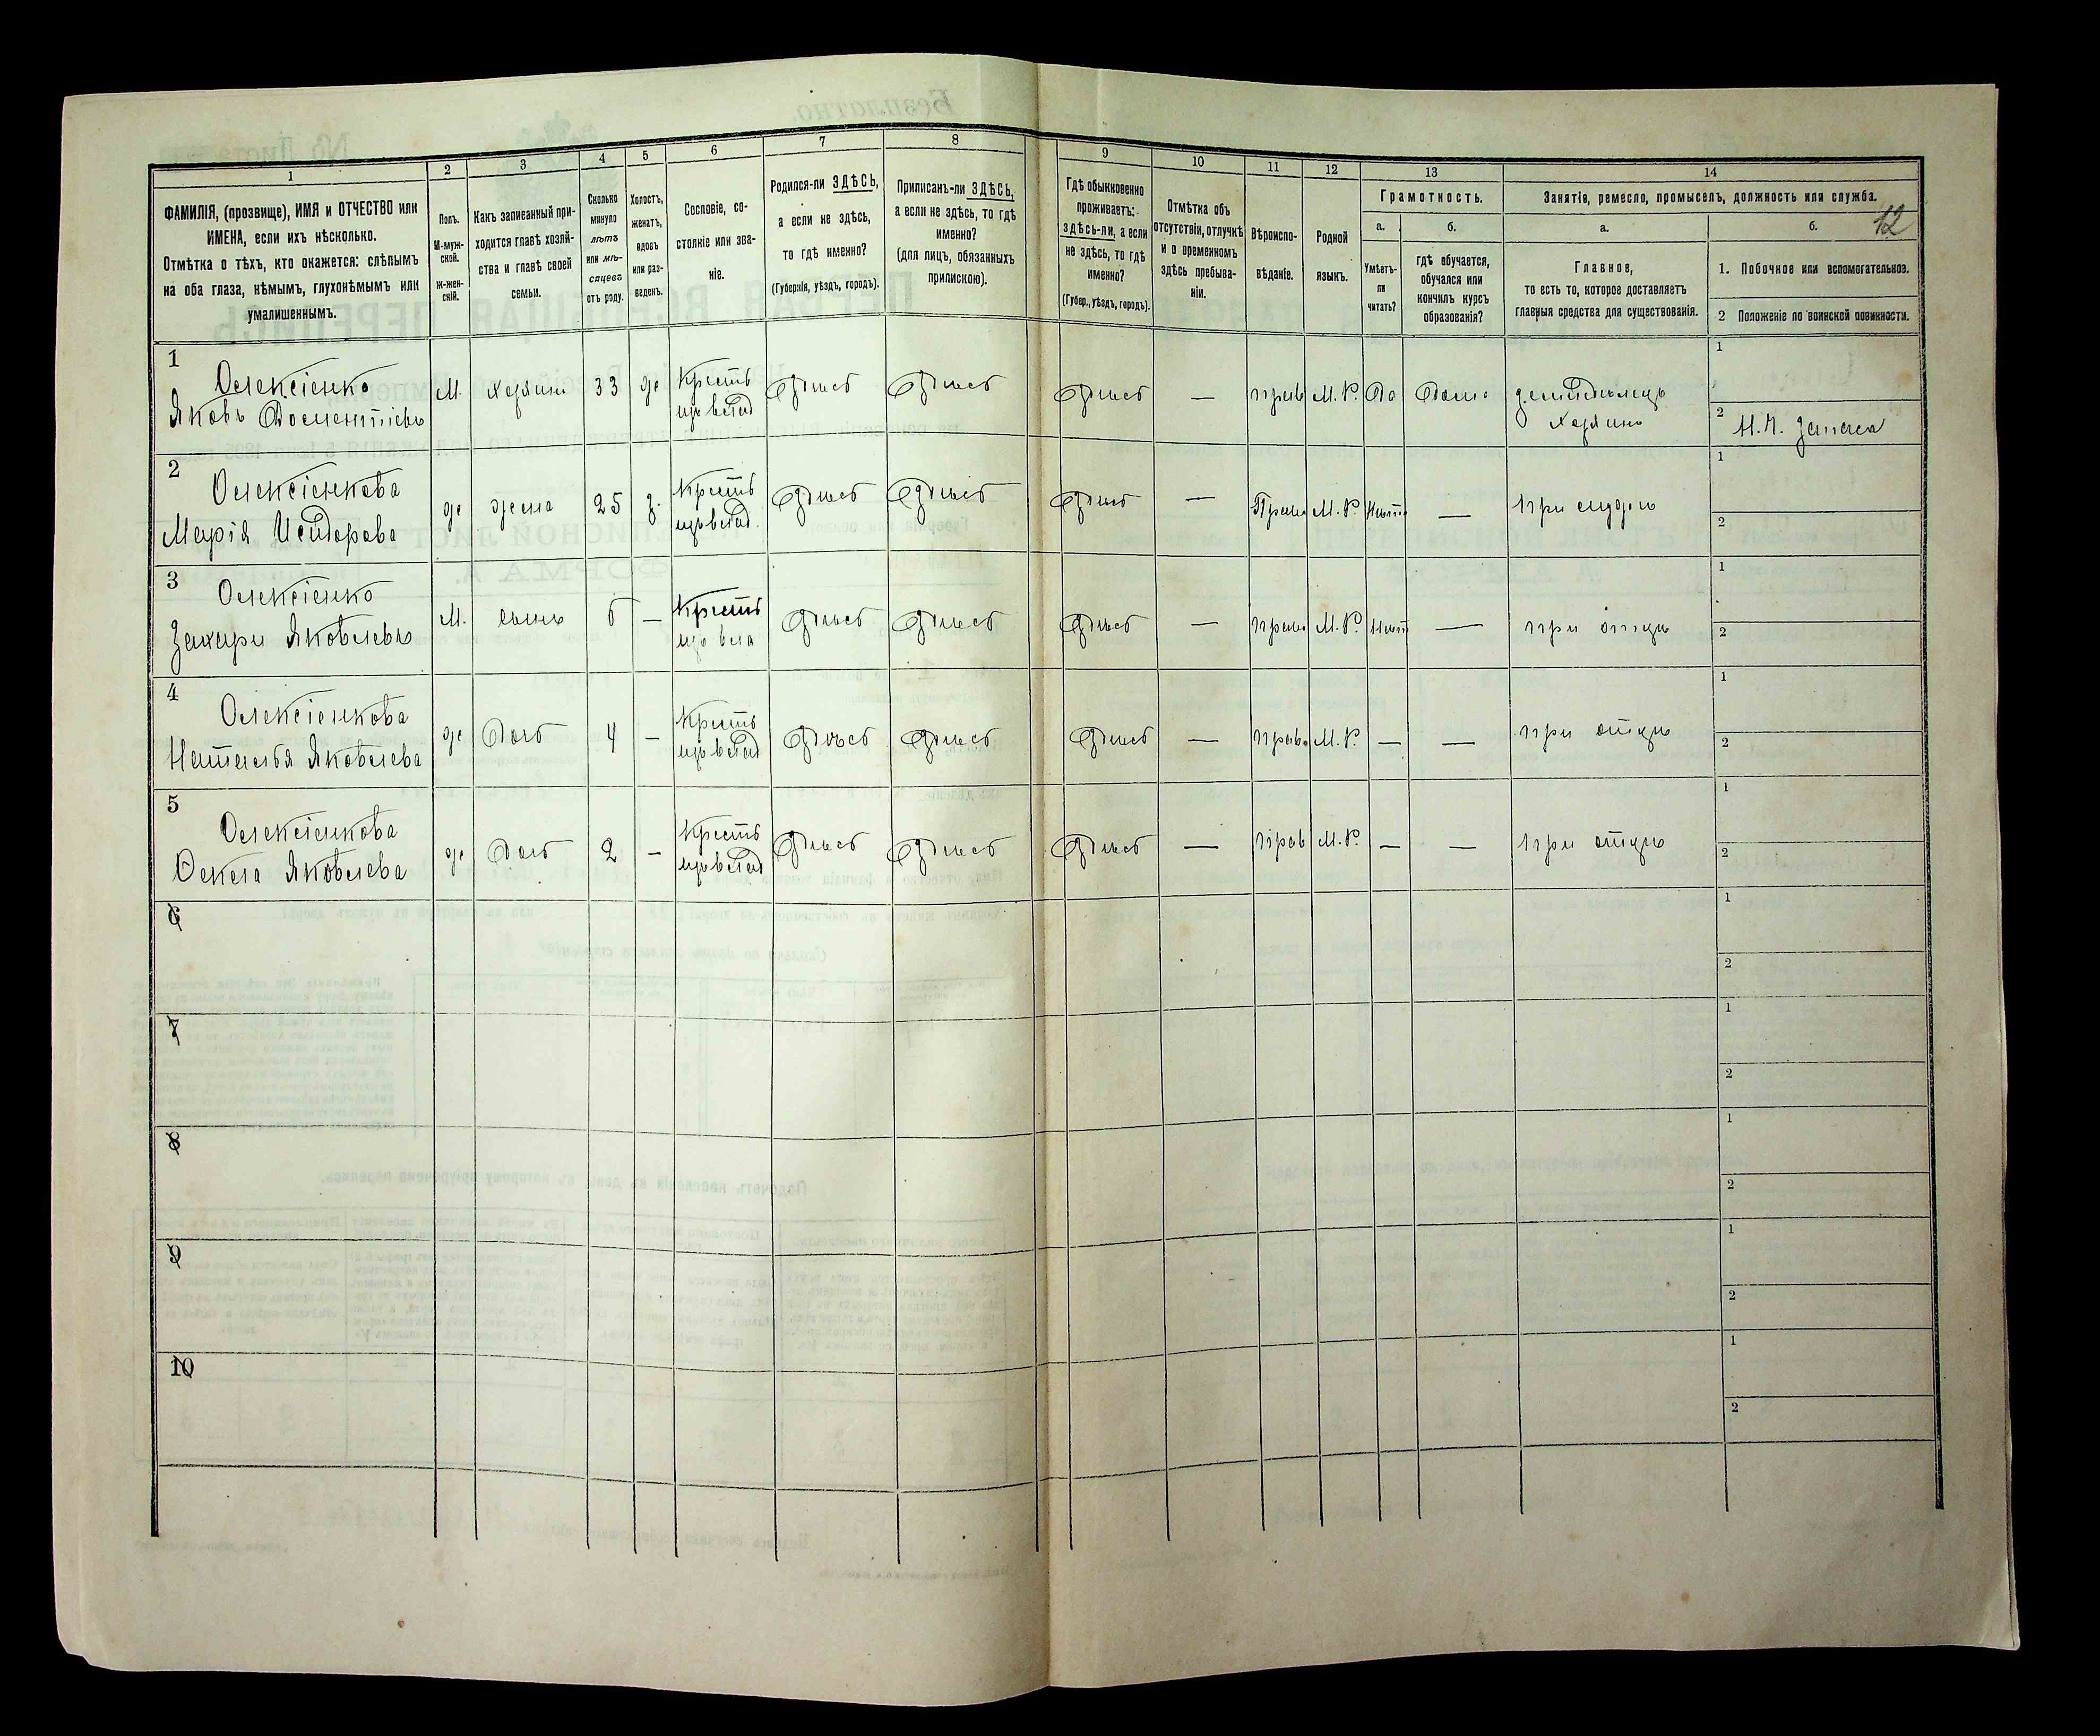 12
1
2
3
4
5
6
7
8
9
10
11
12
13
14
ФАМИЛІЯ, (прозвище), ИМЯ и ОТЧЕСТВО или
ИМЕНА, если ихъ нѣсколько.
Отмѣтка о тѣхъ, кто окажется: слѣпымъ
на оба глаза, нѣмымъ, глухонѣмымъ или
умалишеннымъ.
Полъ.
М-муж-
ской.
Ж-жен-
скій.
Какъ записанный при-
ходится главѣ хозяй-
ства и главѣ своей
семьи.
Сколько
минуло
лѣтъ
или мѣ-
сяцевъ
отъ роду.
Холостъ,
женатъ,
вдовъ
или раз-
веденъ.
Сословіе, со-
стояніе или зва-
ніе.
Родился-ли ЗДѢСЬ,
а если не здѣсь,
то гдѣ именно?
(Губернія, уѣздъ, городъ).
Приписанъ-ли ЗДѢСЬ,
а если не здѣсь, то гдѣ
именно?
(для лицъ, обязанныхъ
припискою).
Гдѣ обыкновенно
проживаетъ:
здѣсь-ли, а если
не здѣсь, то гдѣ
именно?
(Губер., уѣздъ, городъ).
Отмѣтка объ
отсутствіи, отлучкѣ
и о временномъ
здѣсь пребыва-
ніи.
Вѣроиспо-
вѣданіе.
Родной
языкъ.
Грамотность.
а.
Умѣетъ-
ли
читать?
б.
гдѣ обучается,
обучался или
кончилъ курсъ
образованія?
Занятіе, ремесло, промыселъ, должность или служба.
а.
Главное,
то есть то, которое доставляетъ
главныя средства для существованія.
б.
1. Побочное или вспомогательное.
2 Положеніе по воинской повинности.
1
Олексіенко
Яковъ Дометіевъ
М. хозяинъ 33 ж
Крестъ
изъ влад
здѣсь здѣсь здѣсь — прав М.Р. Да Дома
земледѣлецъ
хозяинъ
1
2 Н.Ч. запаса
2
Олексіенкова
Марія Исидорова
ж жена 25 з.
Крестъ
изъ влад.
здѣсь здѣсь здѣсь — Прав М.Р. Нѣтъ — при мужѣ
1
2
3
Олексіенко
Захарій Яковлевъ
М. сынъ 6 —
Крестъ
изъ вла
здѣсь здѣсь здѣсь — прав М.Р. Нѣтъ — при отцѣ
1
2
4
Олексіенкова
Наталья Яковлева
ж Дочь 4 —
Крестъ
изъ влад
здѣсь здѣсь здѣсь — прав М.Р. — — при отцѣ
1
2
5
Олексіенкова
Фекла Яковлева
ж Дочь 2 —
Крестъ
изъ влад
здѣсь здѣсь здѣсь — прав М.Р. — — при отцѣ
1
2
6
1
2
7
1
2
8
1
2
9
1
2
10
1
2